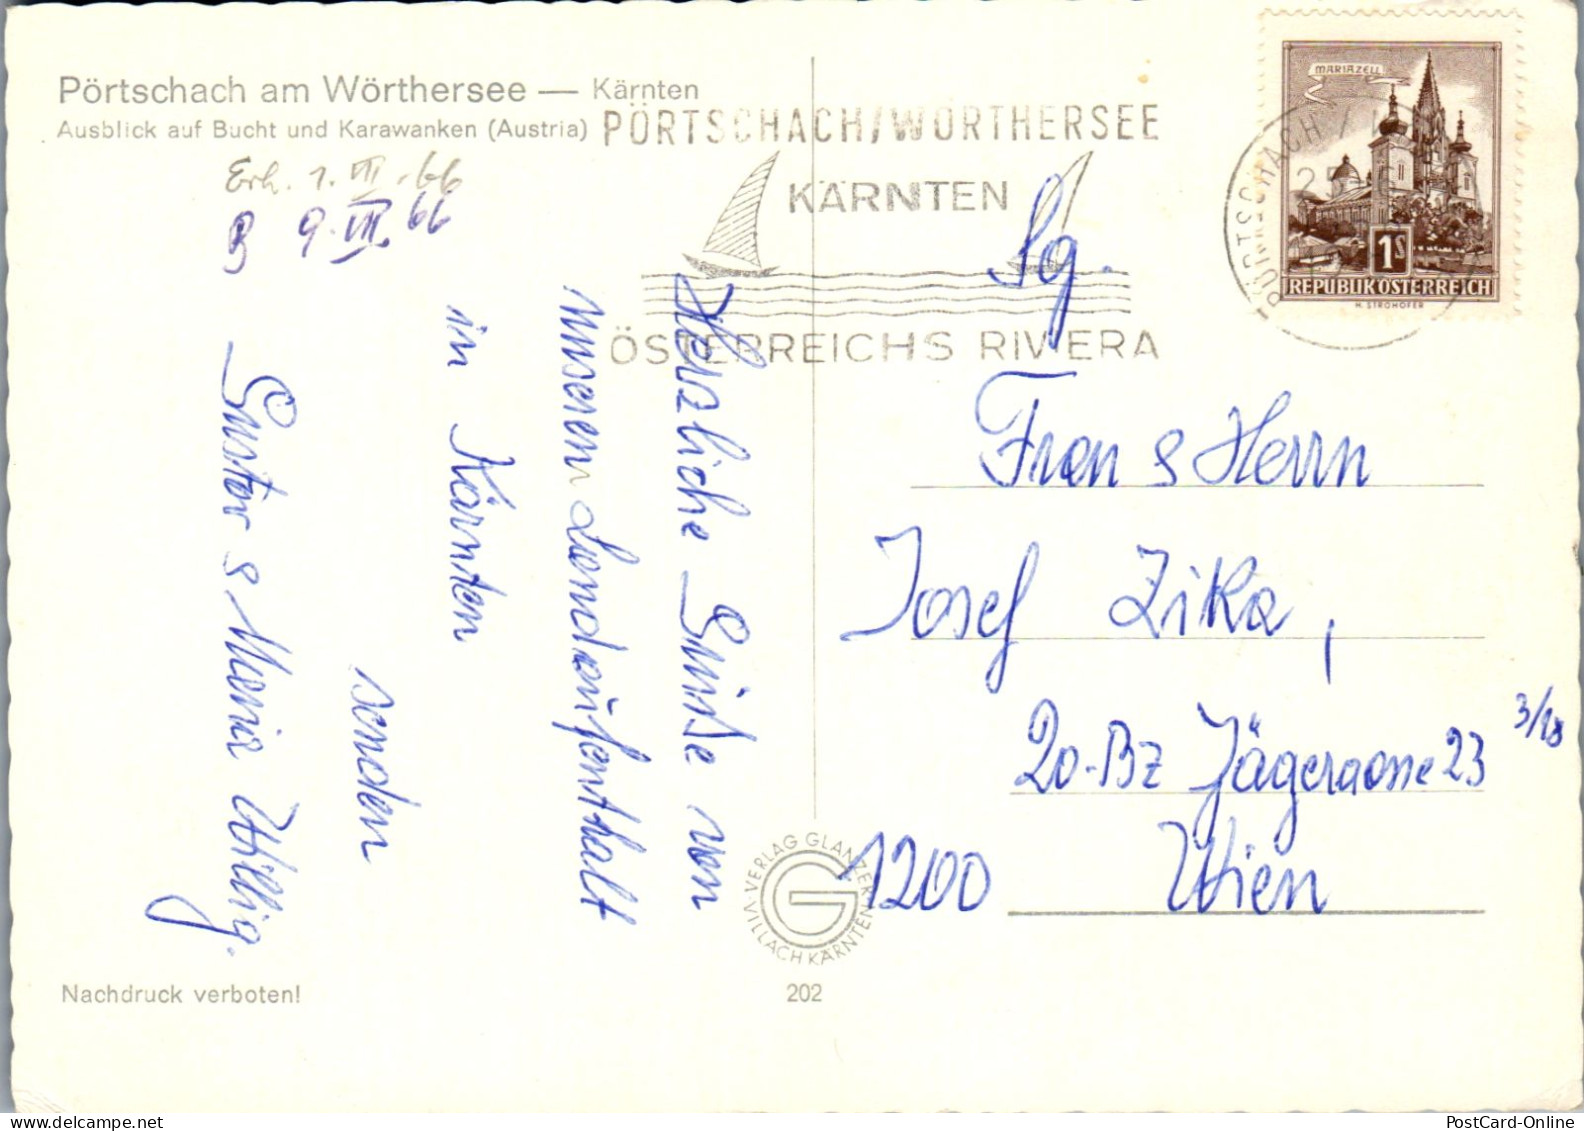 Pörtschach am Wörthersee — Kärnten
Ausblick auf Bucht und Karawanken (Austria)
PÖRTSCHACH/WÖRTHERSEE
KÄRNTEN
ÖSTERREICHS RIVIERA
MARIAZELL
1S
REPUBLIK ÖSTERREICH
H. STROHOFER
PÖRTSCHACH
Erh. 1. VII. 66
9. VII. 66
Herzliche Grüße von
unseren Landaufenthalt
in Kärnten
senden
Gustav & Maria Willig.
Sg.
Frau & Herrn
Josef Zika,
20. Bz Jägergasse 23 3/18
1200 Wien
VERLAG GLANZER
VILLACH KÄRNTEN
G
Nachdruck verboten!
202
PostCard-Online